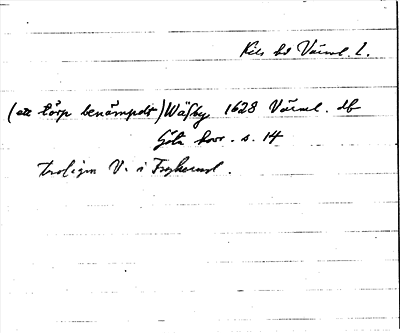 Kils hd Värml. L.
(ett törp benämpdt) Wäsby 1628 Värml. db
Göta hovr. s. 14
troligen V. i Frykerud.